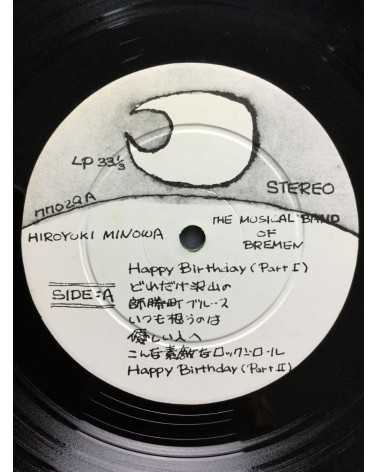 LP 33 1/3
STEREO
77029A
HIROYUKI MINOWA
THE MUSICAL BAND
OF
BREMEN
SIDE:A
Happy Birthday (Part I)
どれだけ沢山の
師勝町ブルース
いつも想うのは
優しい人へ
こんな素敵なロックンロール
Happy Birthday (Part II)